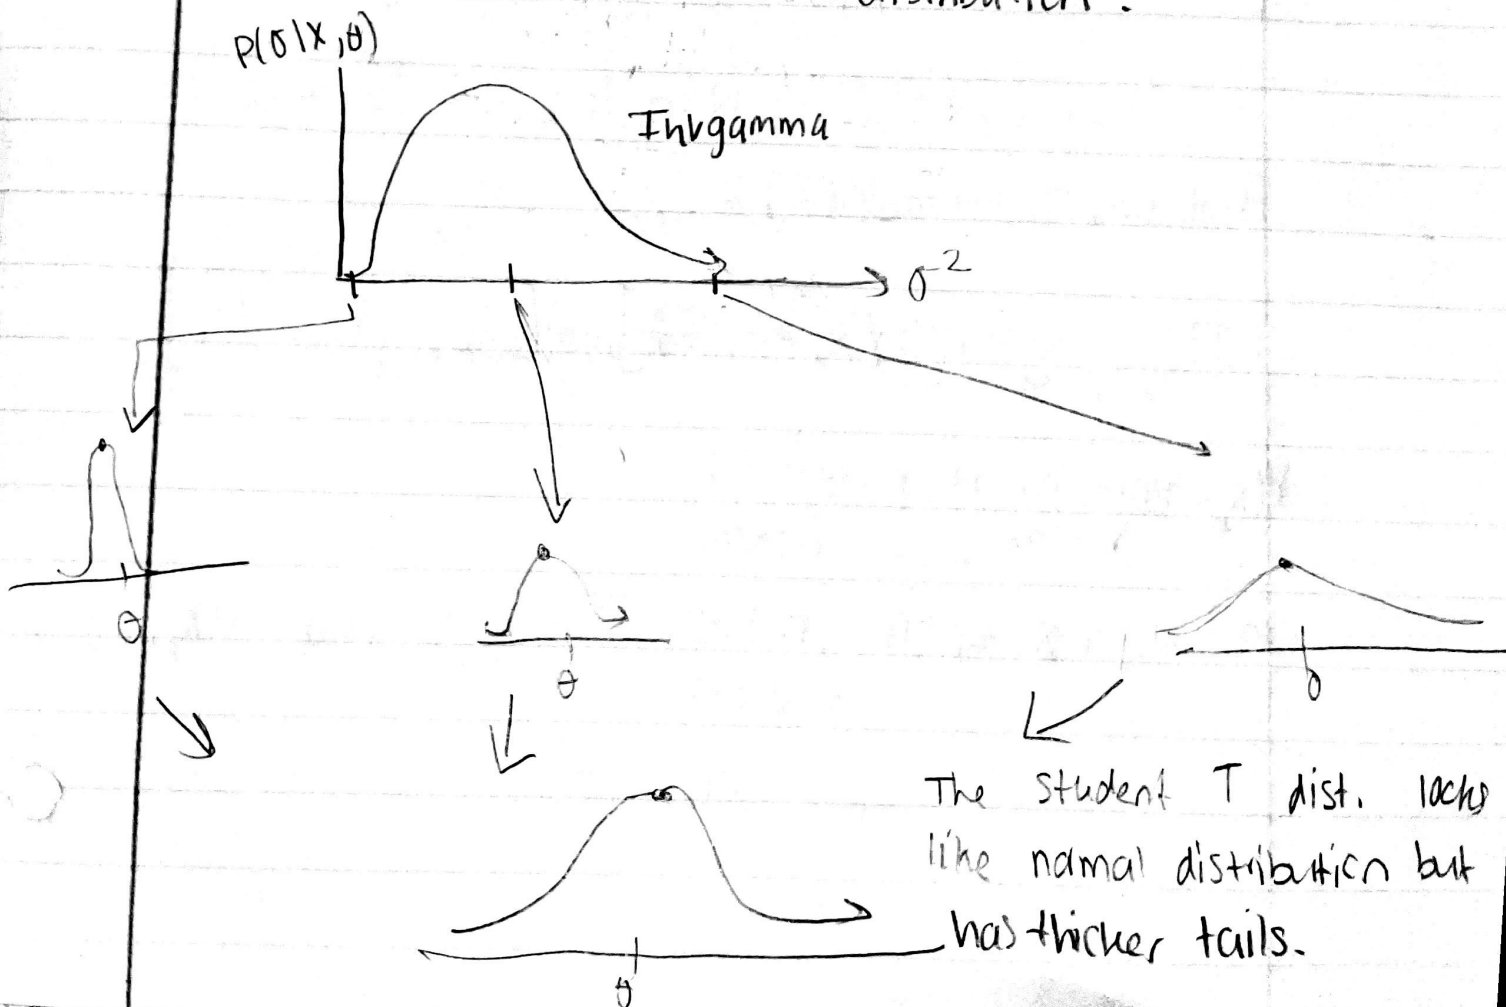 distribution.
P(σ|X,θ)
Invgamma
σ²
θ
θ
θ
The student T dist. looks
like normal distribution but
has thicker tails.
θ